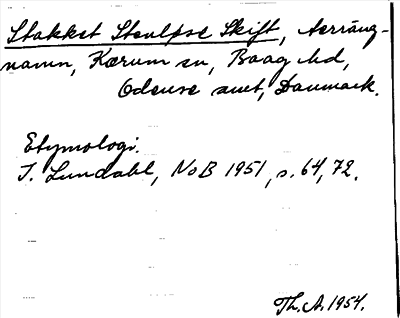 Stakket Stenløse Skift, terräng-
namn, Kærum sn, Baag hd,
Odense amt, Danmark.
Etymologi.
I. Lundahl, NoB 1951, s. 64, 72.
Th. A. 1954.